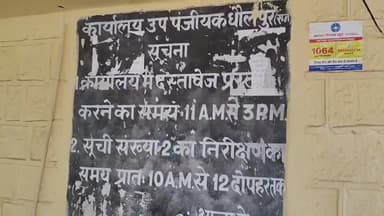 कार्यालय उप पंजीयक धौलपुर (राज)
सूचना
1. कार्यालय में दस्तावेज
करने का समय 11 A.M. से 3 P.M.
2. सूची संख्या-2 का निरीक्षण का
समय प्रातः 10 A.M. से 12 दोपहर तक
1064